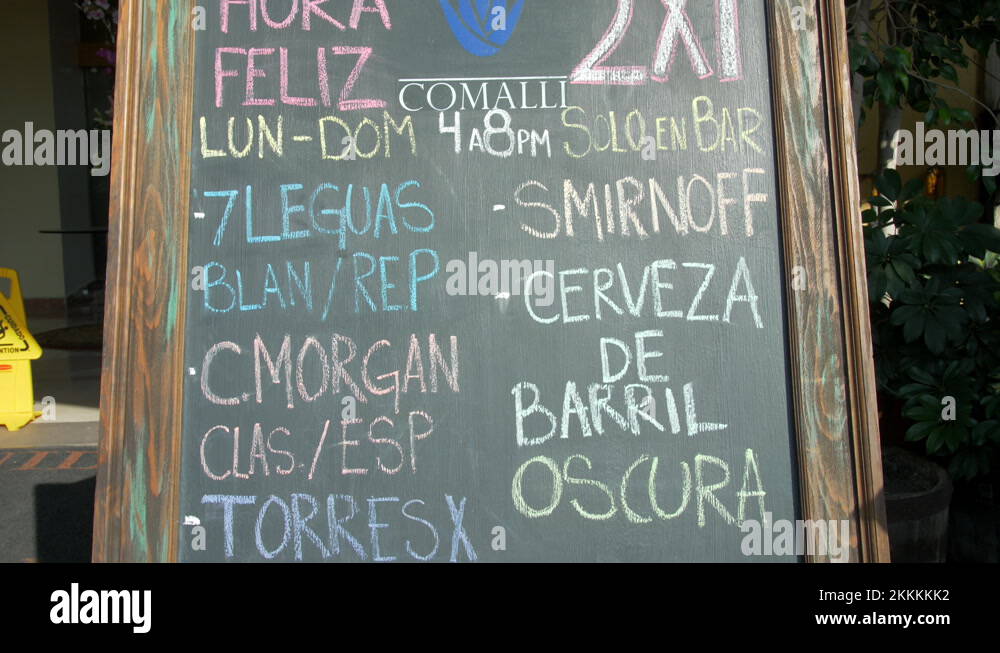 HORA
FELIZ
2X1
COMALLI
LUN-DOM 4 A 8 PM SOLO EN BAR
- 7 LEGUAS
BLAN/REP
- C.MORGAN
CLAS./ESP
- TORRES X
- SMIRNOFF
- CERVEZA
DE
BARRIL
OSCURA
alamy
alamy
Image ID: 2KKKKK2
www.alamy.com